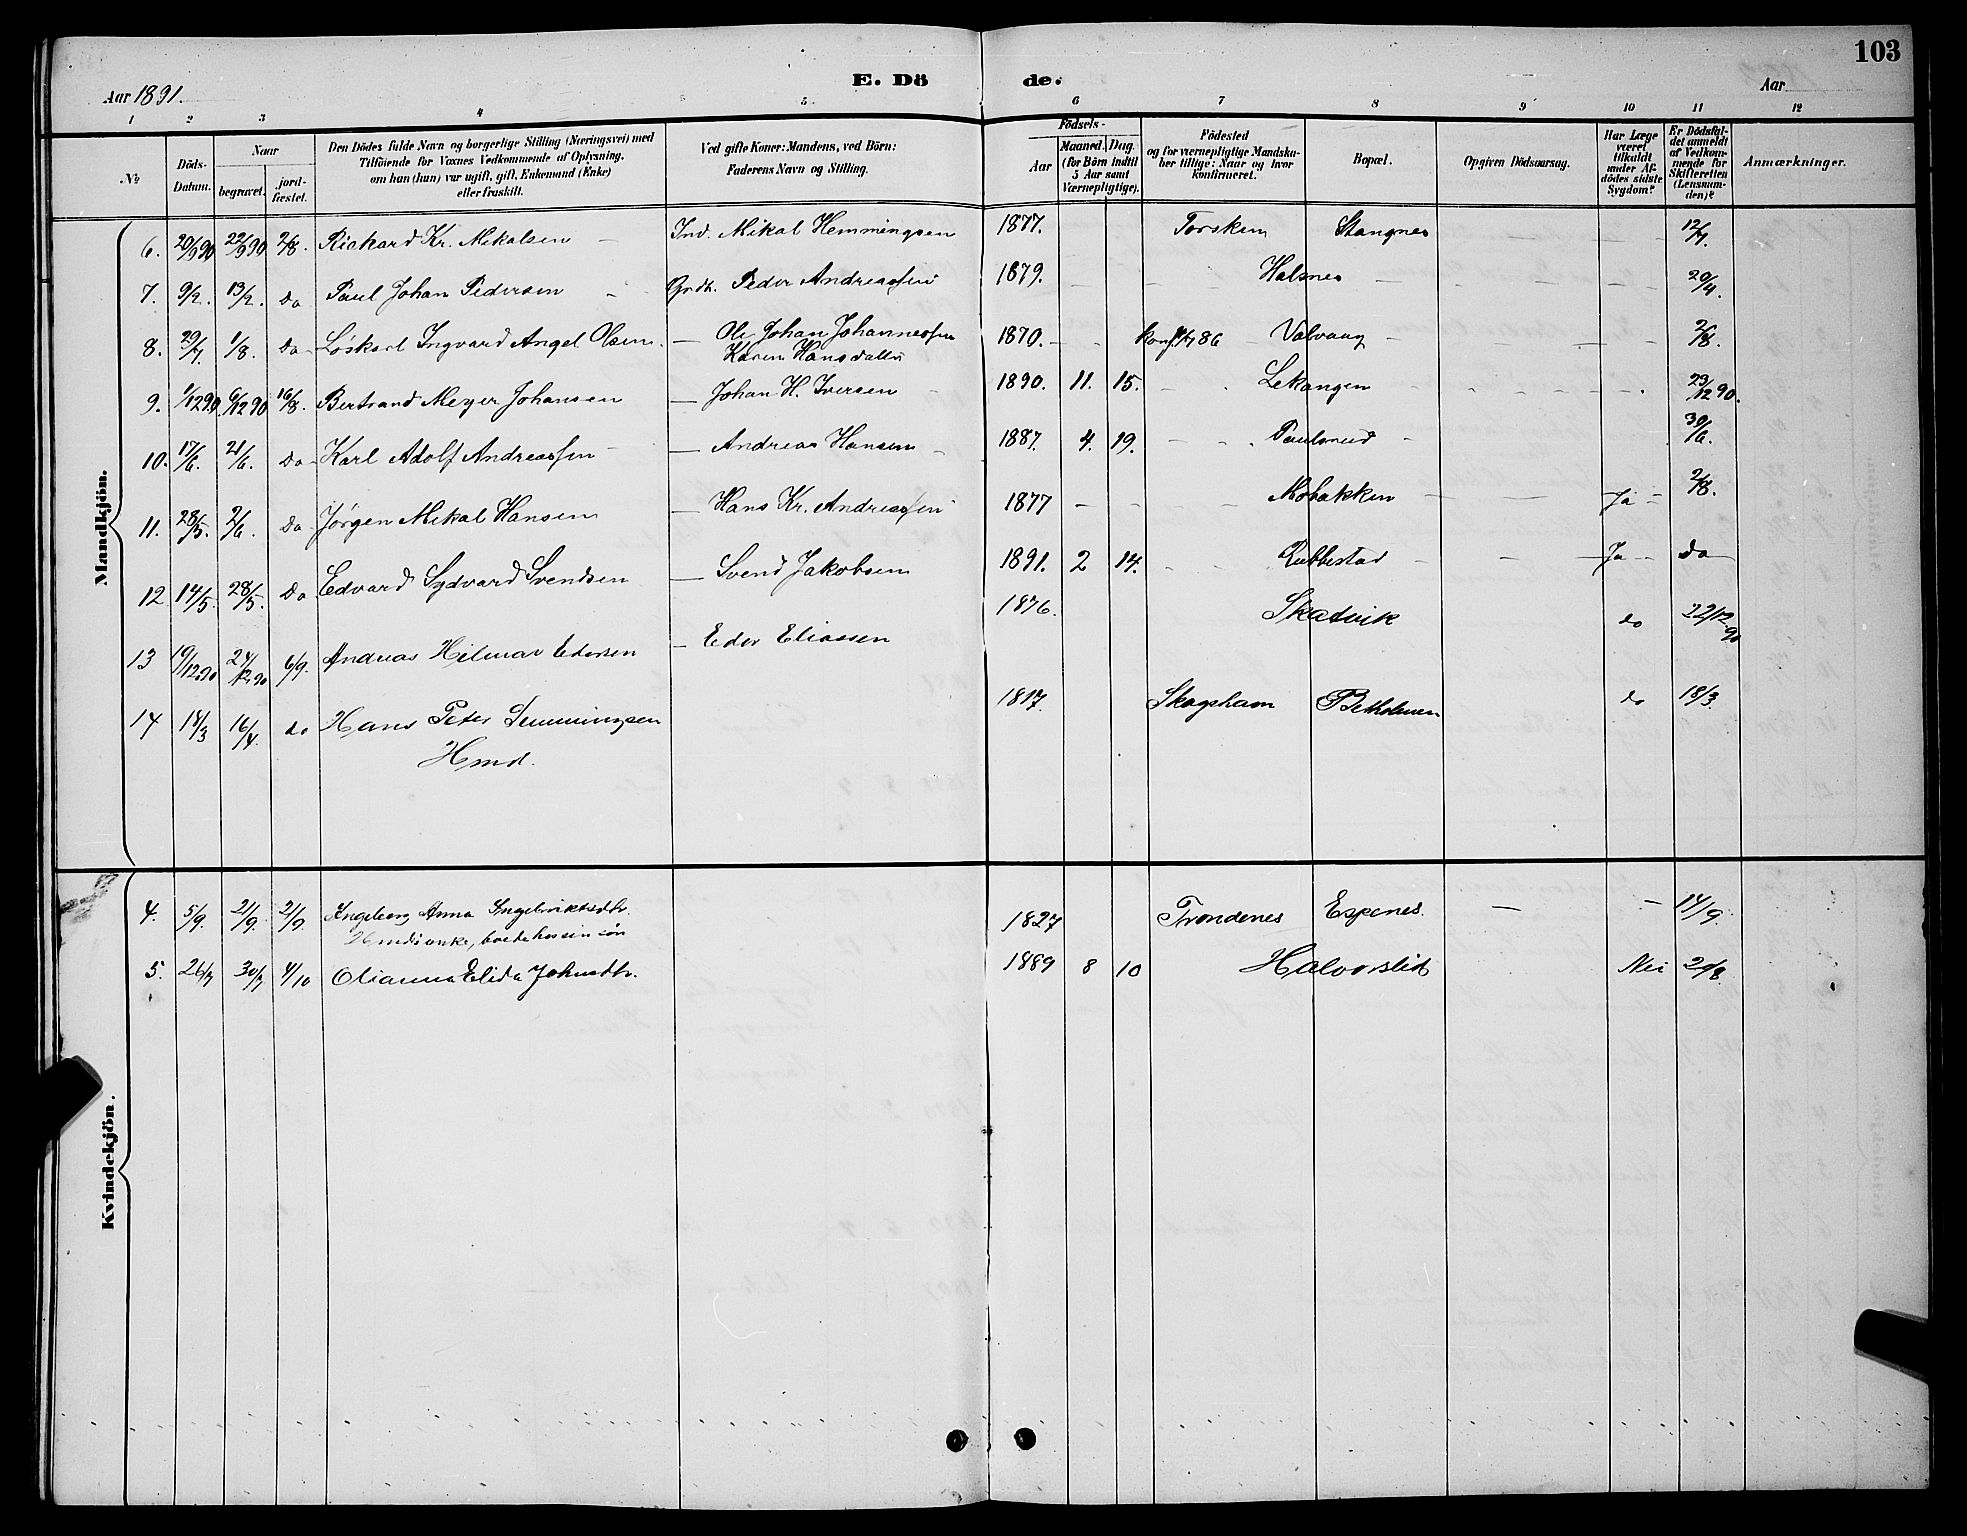 103
Aar 1891.
E. Dö de.
Aar
1 2 3 4 5 6 7 8 9 10 11 12
No.
Döds-Datum.
Naar
begravet.
jord-fæstet.
Den Dödes fulde Navn og borgerlige Stilling (Næringsvei) med
Tilföiende for Voxnes Vedkommende af Oplysning,
om han (hun) var ugift, gift, Enkemand (Enke)
eller fraskilt.
Ved gifte Koner: Mandens, ved Börn:
Faderens Navn og Stilling.
Födsels-
Aar
Maaned. Dag.
(for Börn indtil
5 Aar samt
Værnepligtige).
Födested
og for værnepligtige Mandska-
ber tillige: Naar og hvor
konfirmeret.
Bopæl.
Opgiven Dödsaarsag.
Har Læge
været
tilkaldt
under Af-
dödes sidste
Sygdom?
Er Dödsfal-
det anmeldt
af Vedkom-
mende for
Skifteretten
(Lensman-
den)?
Anmærkninger.
Mandkjön.
6. 20/9 90 22/9 90 2/8. Rickard Kr. Mikalsen – Ind. Mikal Hemmingsen 1877. Torsken Stangnes 12/7.
7. 9/2. 13/2. Do Paul Johan Pedersen – Grdb. Peder Andreassen 1879. Halsnes 20/4.
8. 29/7 1/8. Do Löskarl Ingvard Angel Olsen. – Ole Johan Johannessen 1870. Konf. 86 Valvaag 2/8.
Karen Hansdatter
9. 1/12 90 6/12 90 16/8. Bertrand Meyer Johansen – Johan H. Iversen 1890. 11. 15. Lekangen 23/12 90.
10. 17/6. 21/6. Do Karl Adolf Andreassen – Andreas Hansen 1887. 4. 19. 30/6.
11. 28/5. 2/6. Do Jørgen Mikal Hansen – Hans Kr. Andreassen 1877 Mobakken Ja 2/8.
12. 14/5. 28/5. Do Edvard Sydvard Svendsen – Svend Jakobsen 1891. 2 14. Rubbestad Ja Do
13 19/12 90 24/12 90 6/9. Andreas Hilmar Edersen – Eder Eliassen 1876. Skatvik do 22/12 90
14 18/3 16/4. do Hans Peter 1817. Skogshavn do 18/3.
Hmd.
Kvindekjön.
4. 5/9. 21/9. 21/9. Ingeborg Anna Ingebriktsdtr. 1827 Trondenes Espenes. – – 14/9.
Hmds enke, boede hos sin sön
5. 26/7 30/7 4/10 Olianna Elida Johnsdtr. 1889 8 10 Halvorslid Nei 2/8.